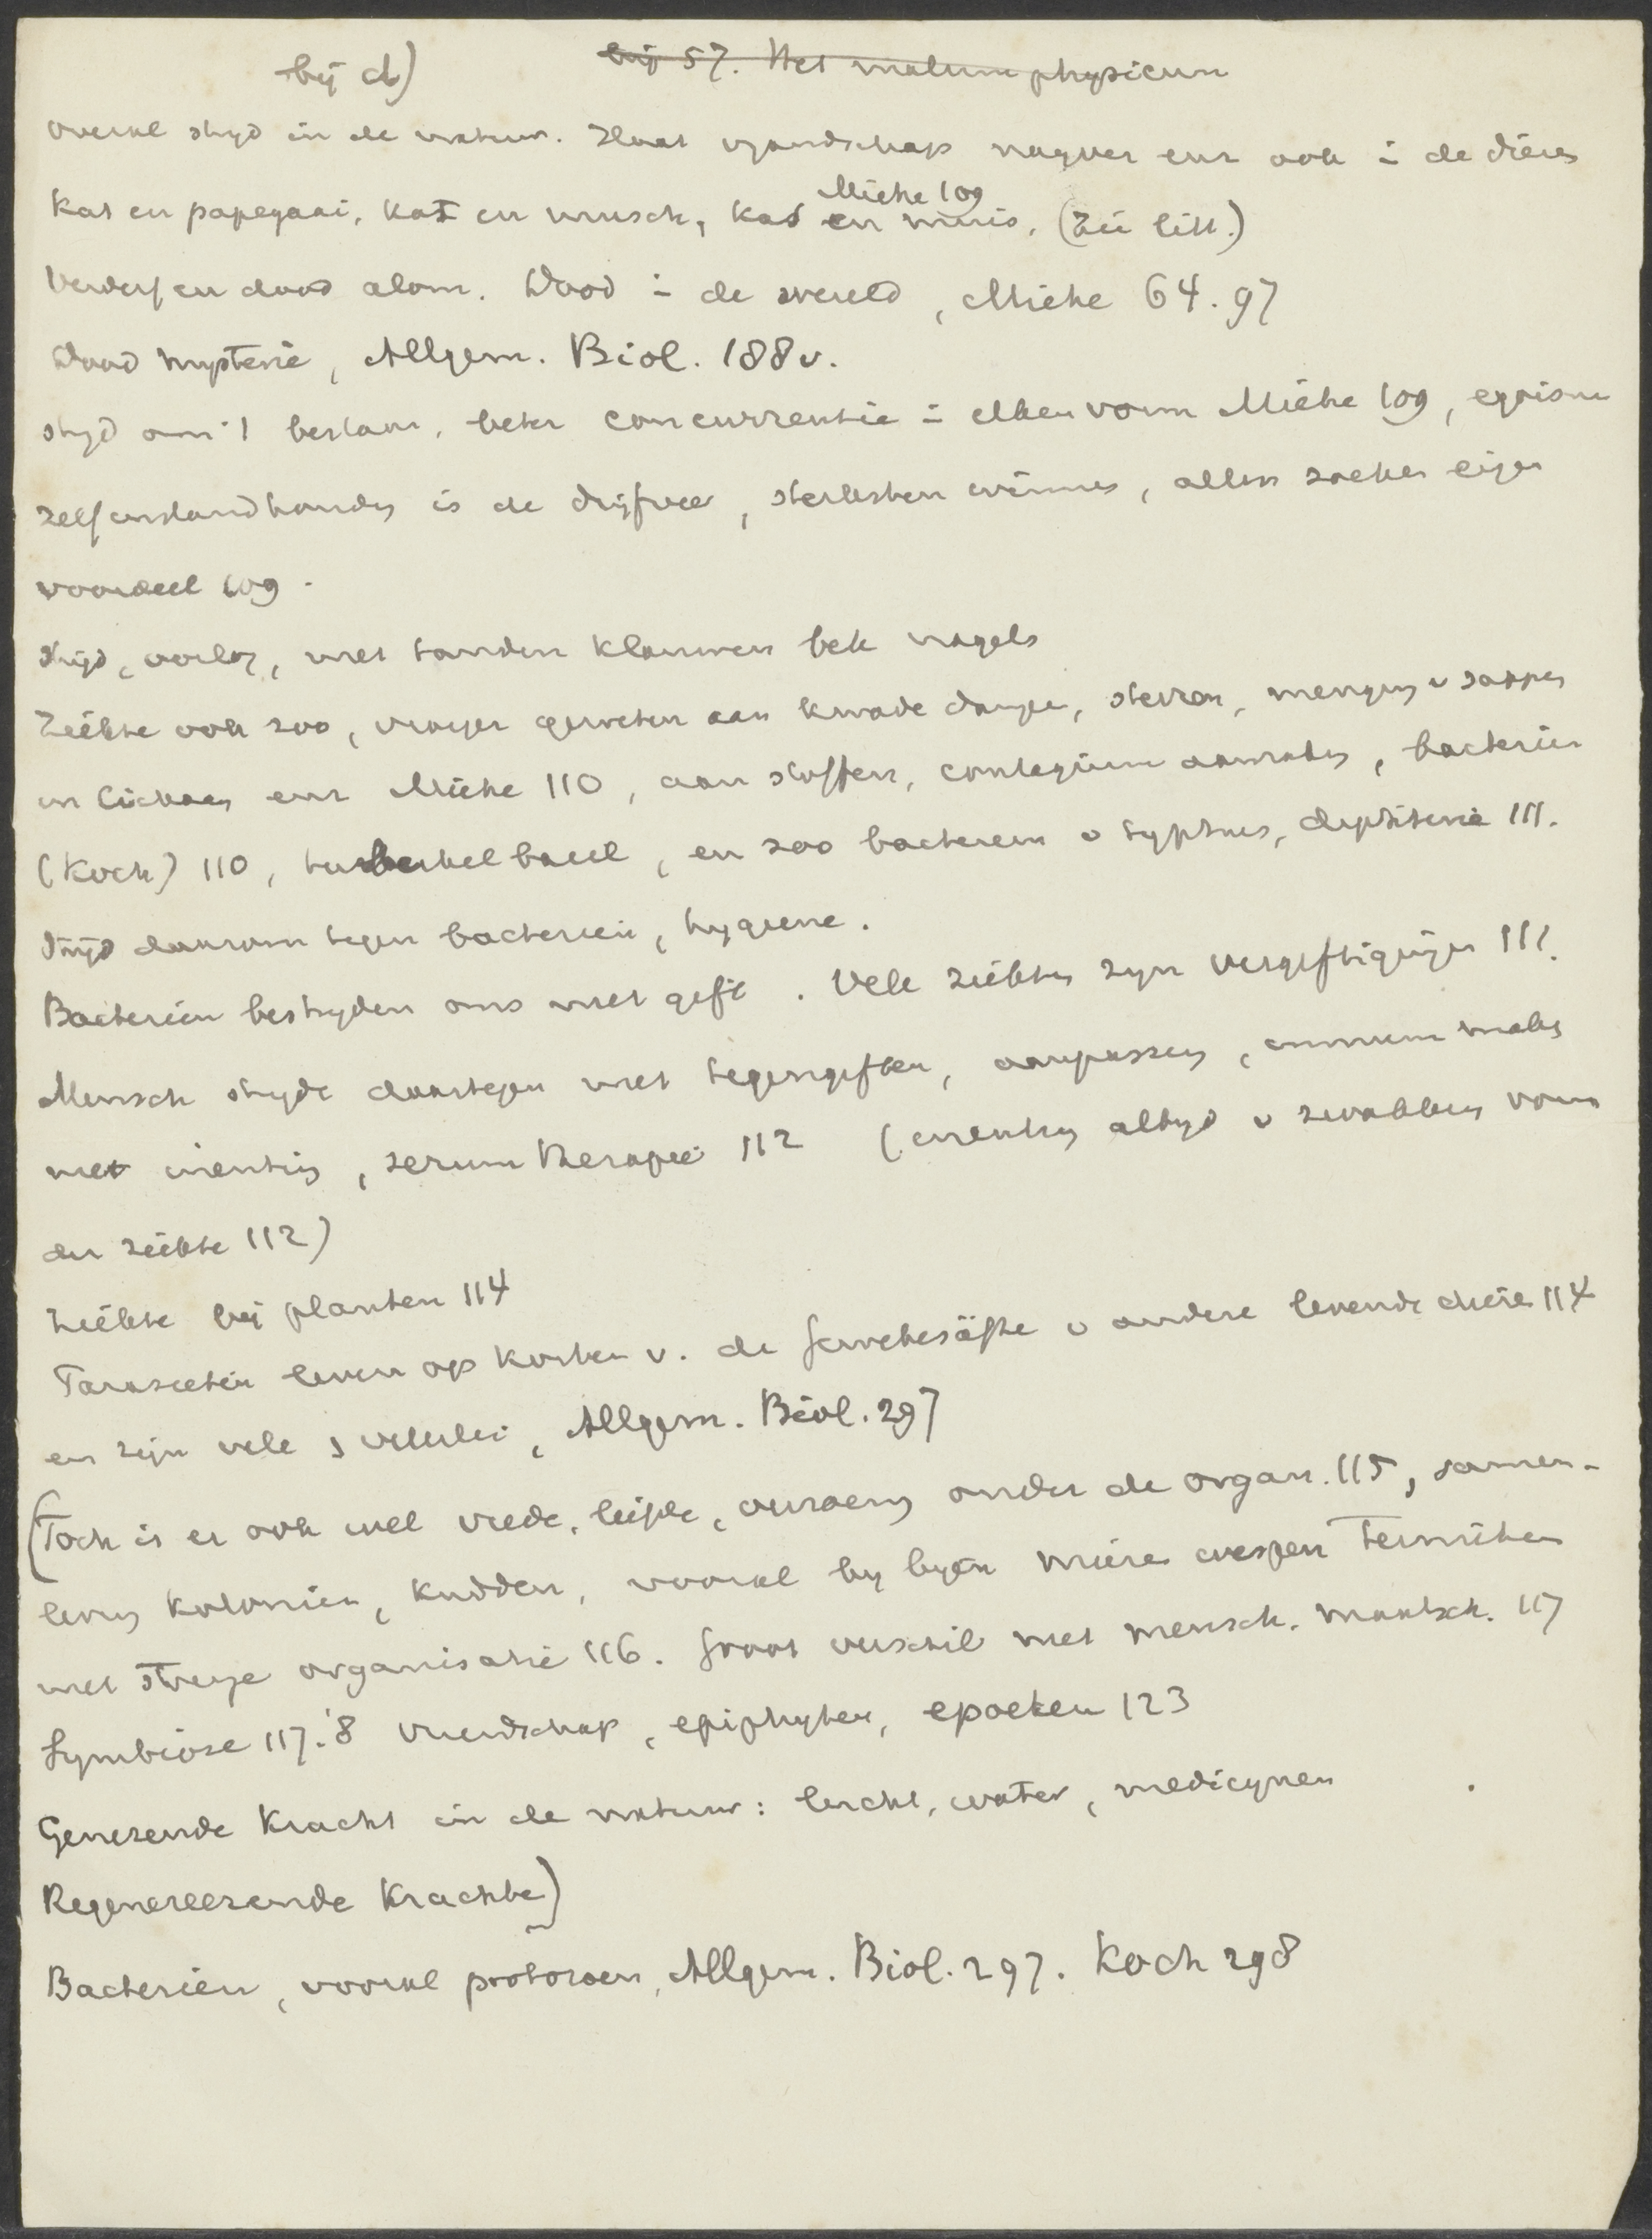 bij d) bij 57. Het malum physicum
overal stryd in de natuur. Haat vyandschap nayver enz ook in de dieren
Kat en papegaai, kat en musch, kat en muis, Miehe 109 (Zie litt.)
Verderf en dood alom. Dood in de wereld, Miehe 64. 97
Dood mysterie, Allgem. Biol. 188 v.
stryd om 't bestaan, beter concurrentie in elken vorm Miehe 109, egoisme
zelfinstandhouding is de drijfveer, sterksten winnen, allen zoeken eigen
voordeel 109.
Stryd, oorlog, met tanden klauwen bek nagels
Ziekte ook zoo, vroeger geweten aan kwade dampen, sterren, menging v sappen
in lichaam enz Miehe 110, aan stoffen, contagium, bacterien
(Koch) 110, tuberkelbacil, en zoo bacterien v typhus, diphterie 111.
Stryd daarom tegen bacterien, hygiene.
Bacterien bestryden ons met gift. Vele ziekten zyn vergiftigingen 111.
Mensch strydt daartegen met tegengiften, aanpassing, immun making
met inenting, serum therapie 112 (inenting altyd v zwakken vorm
der ziekte 112)
Ziekte bij planten 114
Parasieten leven op kosten v. de Gewebesäfte v andere levende dieren 114
en zijn vele & velerlei, Allgem. Biol. 297
(Toch is er ook wel vrede, liefde, under de organ. 115, samen-
leving kolonien, kudden, vooral by byen mieren wespen termiten
met strenge organisatie 116. Groot verschil met mensch. maatsch. 117
Symbiose 117.'8 vriendschap, epiphyten, epoeken 123
Genezende kracht in de natuur: lucht, water, medicynen
Regenereerende krachten)
Bacterien, vooral protozoen, Allgem. Biol. 297. Koch 298